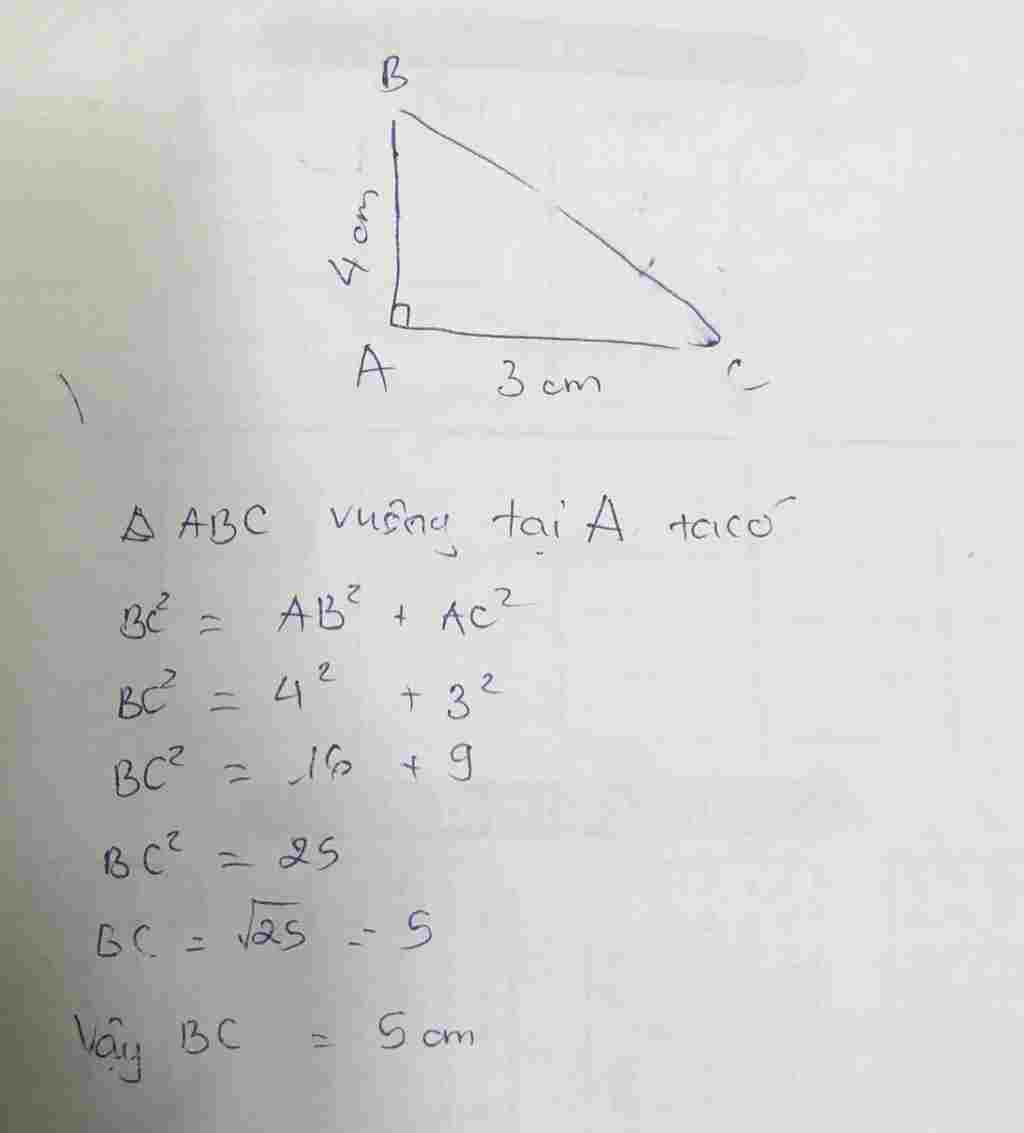 B
4 cm
A
3 cm
C
Δ ABC vuông tại A ta có
BC² = AB² + AC²
BC² = 4² + 3²
BC² = 16 + 9
BC² = 25
BC = √25 = 5
Vậy BC = 5 cm